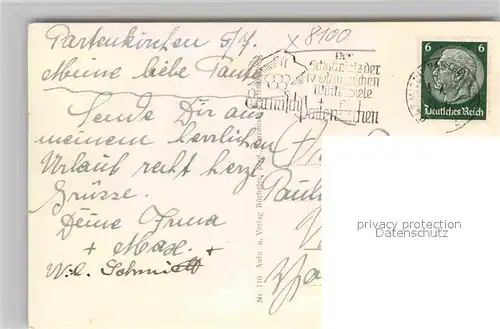 Partenkirchen 5/7.
x 8100
Meine liebe Tante
Sende Dir aus
meinem herrlichen
Urlaub recht herzl.
Grüsse.
Deine Irma
+ Max. +
Schmidt
Der
Schauplatz der
IV. olympischen
Winterspiele
Garmisch Partenkirchen
6 6
Deutsches Reich
Nr. 110 Auto u. Verlag
Paul
privacy protection
Datenschutz